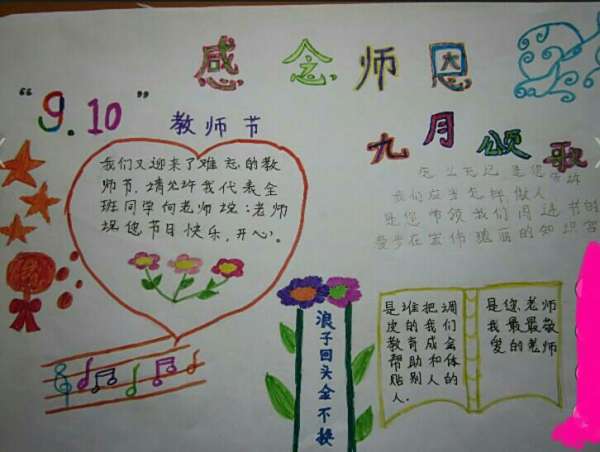 感念师恩
“9.10”
教师节
九月颂歌
我们又迎来了难忘的教
师节,请允许我代表全
班同学向老师说:老师
祝您节日快乐,开心。
是您告诉
我们应当怎样做人
是您带领我们闯进书的
漫步在宏伟瑰丽的知识宫
浪子回头金不换
是谁把调
皮的我们
教育成会
帮助和体
贴别人的
人.
是您,老师
我最最敬
爱的老师